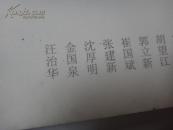 胡望江
郭立新
崔国斌
张建新
沈厚明
金国泉
汪治华